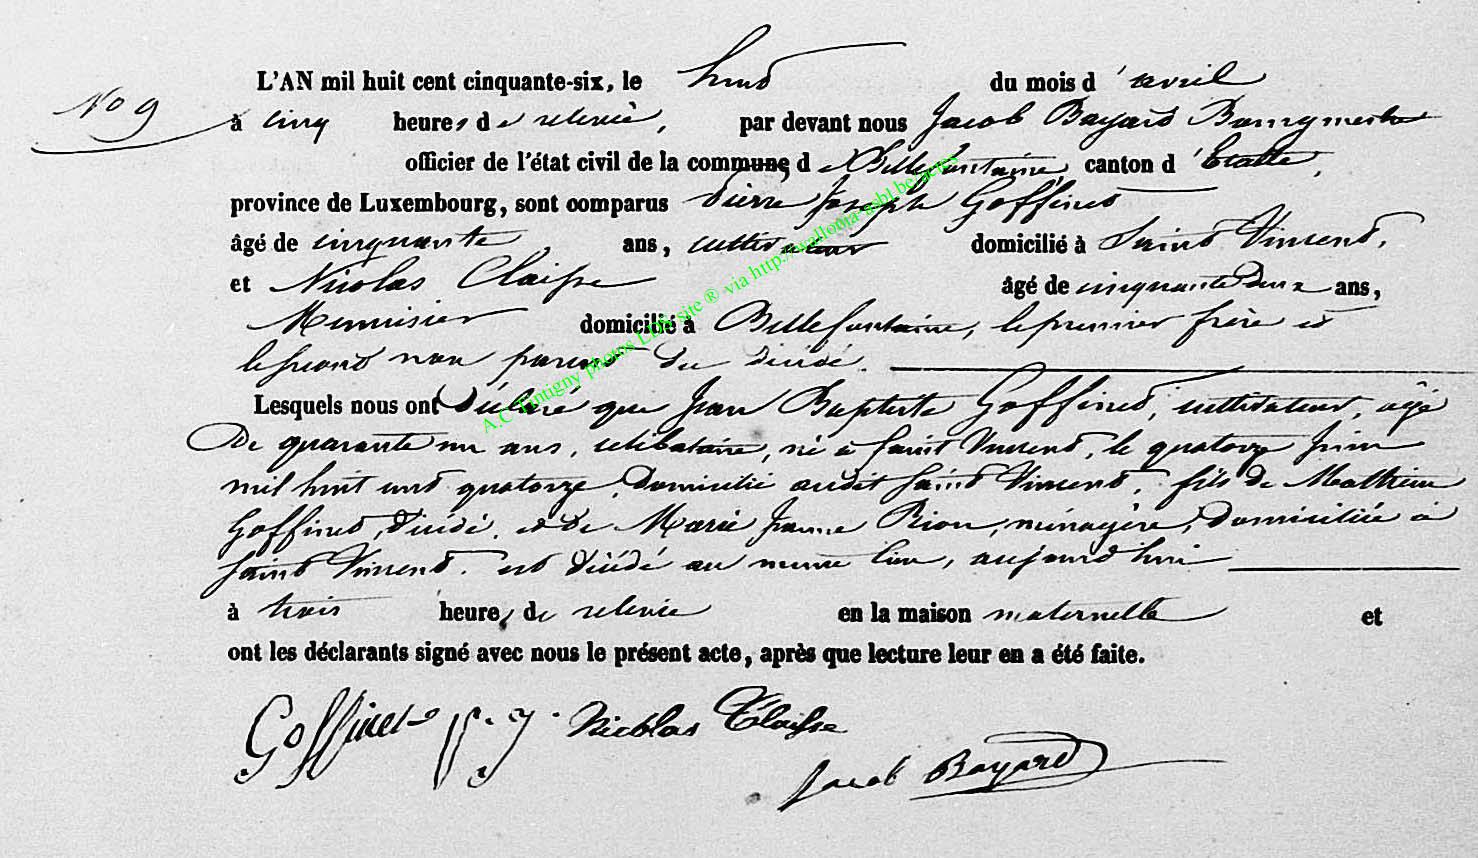 L'AN mil huit cent cinquante-six, le huit du mois d'avril
No 9
à cinq heures de relevée, par devant nous Jacob Bayard Bourgmestre
officier de l'état civil de la commune de Bellefontaine canton d'Etalle,
province de Luxembourg, sont comparus Pierre Joseph Goffinet
âgé de cinquante ans, cultivateur domicilié à Saint Vincent,
et Nicolas Claisse âgé de cinquante deux ans,
Menuisier domicilié à Bellefontaine, le premier frère et
le second non parent du décédé.
Lesquels nous ont déclaré que Jean Baptiste Goffinet, cultivateur, âgé
de quarante un ans, célibataire, né à Saint Vincent, le quatorze juin
mil huit cent quatorze, domicilié audit Saint Vincent, fils de Mathieu
Goffinet, décédé, et de Marie Jeanne Rion, ménagère, domiciliée à
Saint Vincent. est décédé au même lieu, aujourd'hui
à trois heures de relevée en la maison maternelle et
ont les déclarants signé avec nous le présent acte, après que lecture leur en a été faite.
Goffinet p.j. Nicolas Claisse
Jacob Bayard
A.C Tintigny photos LDS site ® via http://wallonia-asbl.be/actes